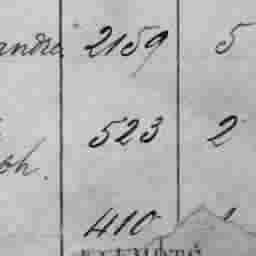 andre 2159 5
523 2
oh.
410